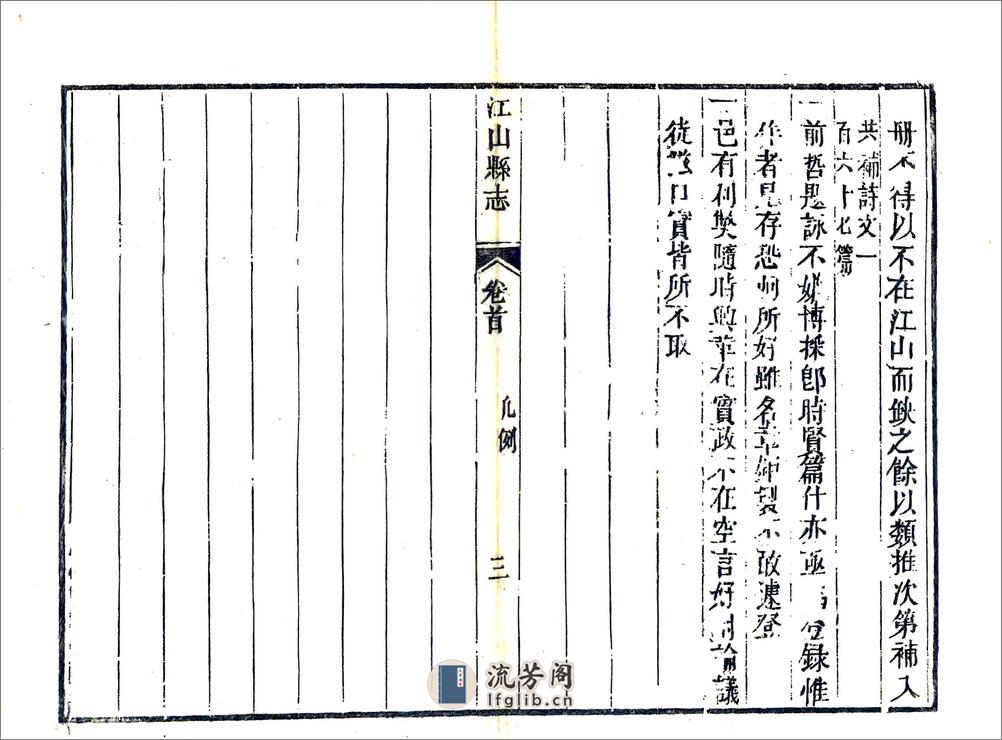 冊不得以不在江山而缺之餘以類推次第補入
共補詩文一
百六十七篇
一前哲題詠不妨博採即時賢篇什亦亟為登錄惟
作者見存恐阿所好雖名章鉅製不敢遽登
一邑有利獘隨時興革在實政不在空言好論議
徒口實皆所不取
江山縣志
卷首
凡例
三
流芳阁
lfglib.cn